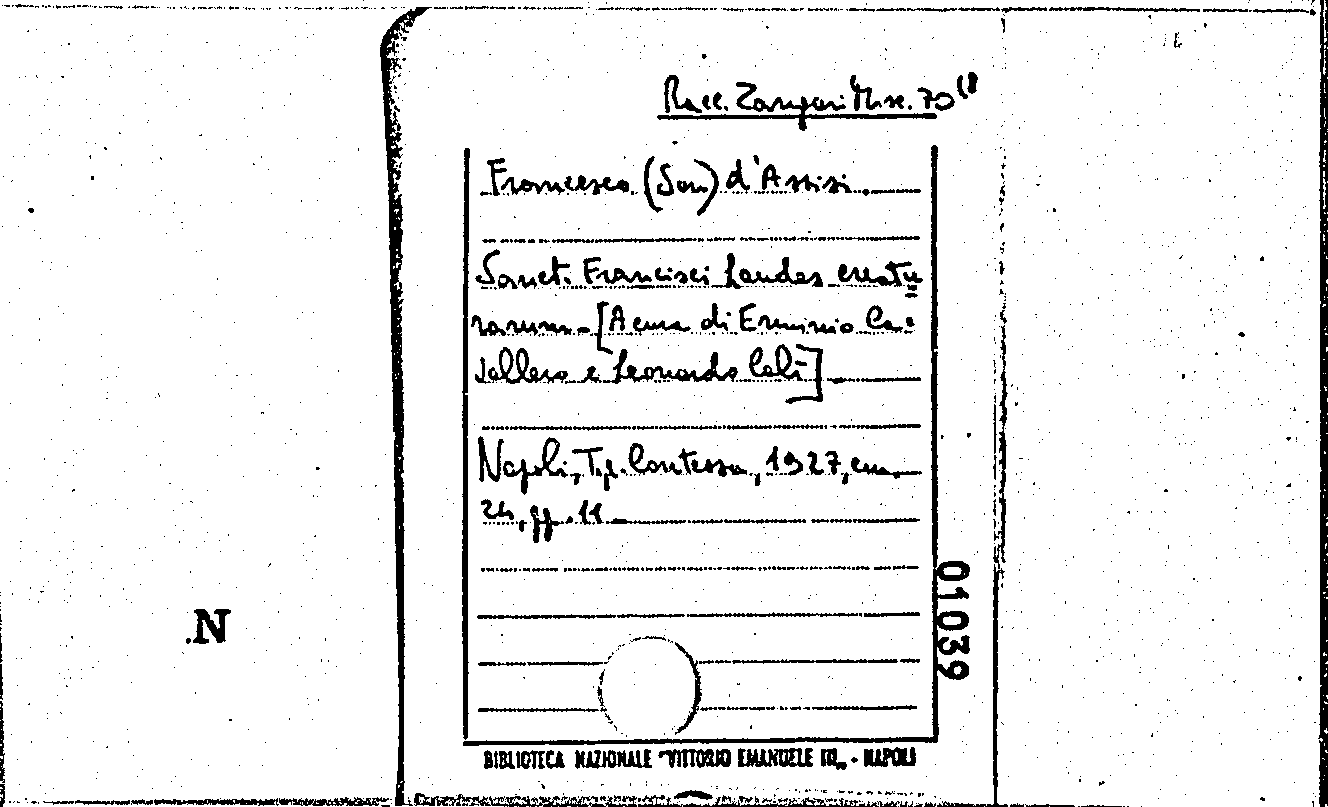 Racc. Zangari Misc. 70(8
Francesco (San) d'Assisi.
Sanct. Francisci Laudes creatu=
rarum.-[A cura di Erminio Ca=
vallero e Leonardo Calì].
Napoli, Tip. Contessa, 1927, cm.
24, pp. 11
01039
N
BIBLIOTECA NAZIONALE "VITTORIO EMANUELE III„ - NAPOLI